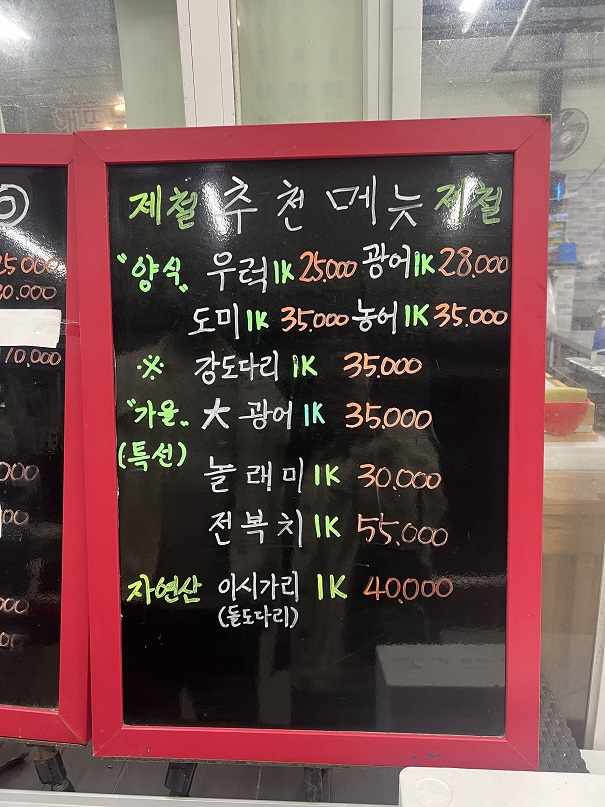 제철 추천메뉴 제철
"양식" 우럭 1K 25.000 광어 1K 28.000
도미 1K 35.000 농어 1K 35.000
※ 강도다리 1K 35.000
"가을" 大 광어 1K 35.000
(특선)
놀래미 1K 30.000
전복치 1K 55.000
자연산 이시가리 1K 40.000
(돌도다리)
10.000